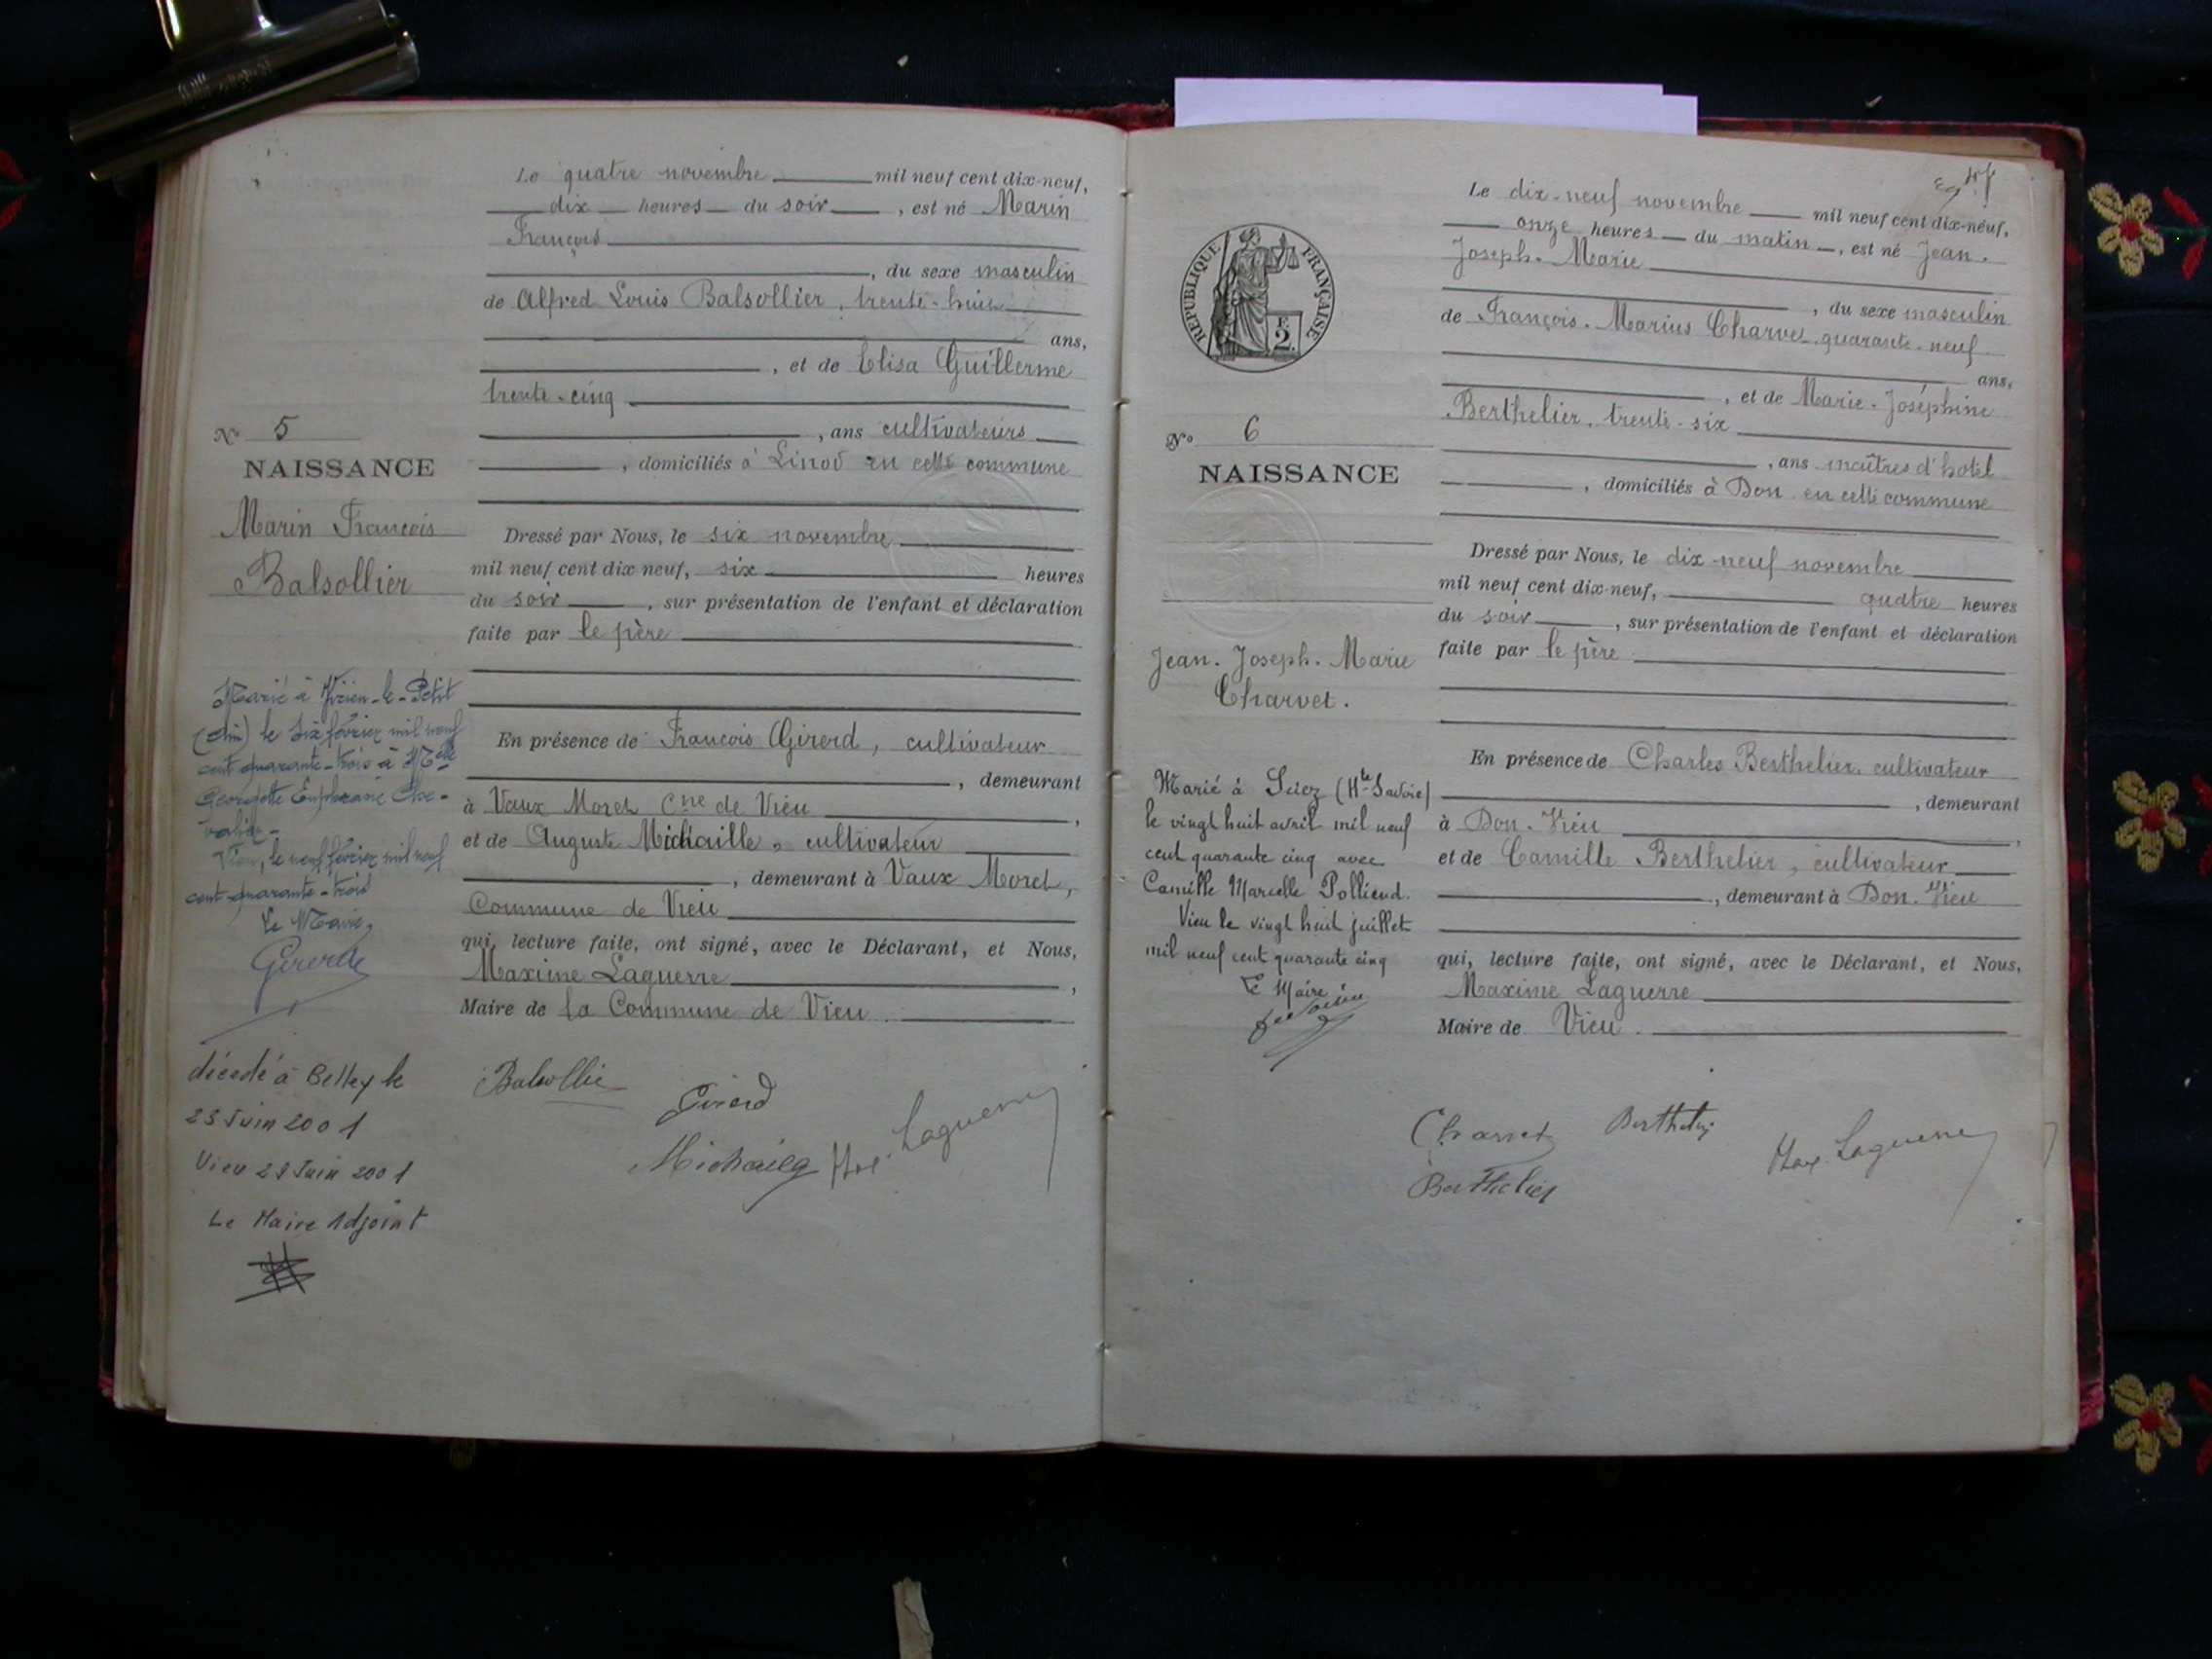 Le quatre novembre mil neuf cent dix-neuf,
dix heures du soir, est né Marin
François
, du sexe masculin
de Alfred Louis Balsollier, trente-huit
ans,
, et de Elisa Guillerme
trente-cinq
, ans cultivateurs
, domiciliés à Linod en cette commune
N° 5
NAISSANCE
Marin François
Balsollier
Dressé par Nous, le six novembre
mil neuf cent dix neuf, six heures
du soir, sur présentation de l'enfant et déclaration
faite par le père
En présence de François Girerd, cultivateur
, demeurant
à Vaux Moret Cne de Vieu,
et de Auguste Michaille, cultivateur
, demeurant à Vaux Moret,
Commune de Vieu
qui, lecture faite, ont signé, avec le Déclarant, et Nous,
Maxime Laguerre,
Maire de la Commune de Vieu
Marié à Virieu-le-Petit
(Ain) le six février mil neuf
cent quarante-trois à Melle
Georgette Euphrasie Che-
valier-
Vieu, le neuf février mil neuf
cent quarante-trois
Le Maire,
Girerd
décédé à Belley le
23 Juin 2001
Vieu 29 Juin 2001
Le Maire Adjoint
Balsollier
Girerd
Michaille Max. Laguerre
Le dix-neuf novembre mil neuf cent dix-neuf,
onze heures du matin, est né Jean.
Joseph. Marie
, du sexe masculin
de François. Marius Charvet quarante-neuf
ans,
, et de Marie. Joséphine
Berthelier, trente-six
, ans maîtres d'hotel
, domiciliés à Don en cette commune
RÉPUBLIQUE FRANÇAISE
F.
2.
N° 6
NAISSANCE
Jean. Joseph. Marie
Charvet.
Dressé par Nous, le dix-neuf novembre
mil neuf cent dix-neuf, quatre heures
du soir, sur présentation de l'enfant et déclaration
faite par le père
En présence de Charles Berthelier, cultivateur
, demeurant
à Don. Vieu,
et de Camille Berthelier, cultivateur
, demeurant à Don. Vieu
qui, lecture faite, ont signé, avec le Déclarant, et Nous,
Maxime Laguerre
Maire de Vieu.
Marié à (Hte Savoie)
le vingt huit avril mil neuf
cent quarante cinq avec
Camille Marcelle Polliend.
Vieu le vingt huit juillet
mil neuf cent quarante cinq
Le Maire
Charvet Berthelier
Max. Laguerre
Berthelier